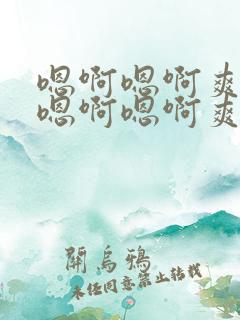 嗯啊嗯啊爽
嗯啊嗯啊爽
開烏鴉
未经同意禁止转载